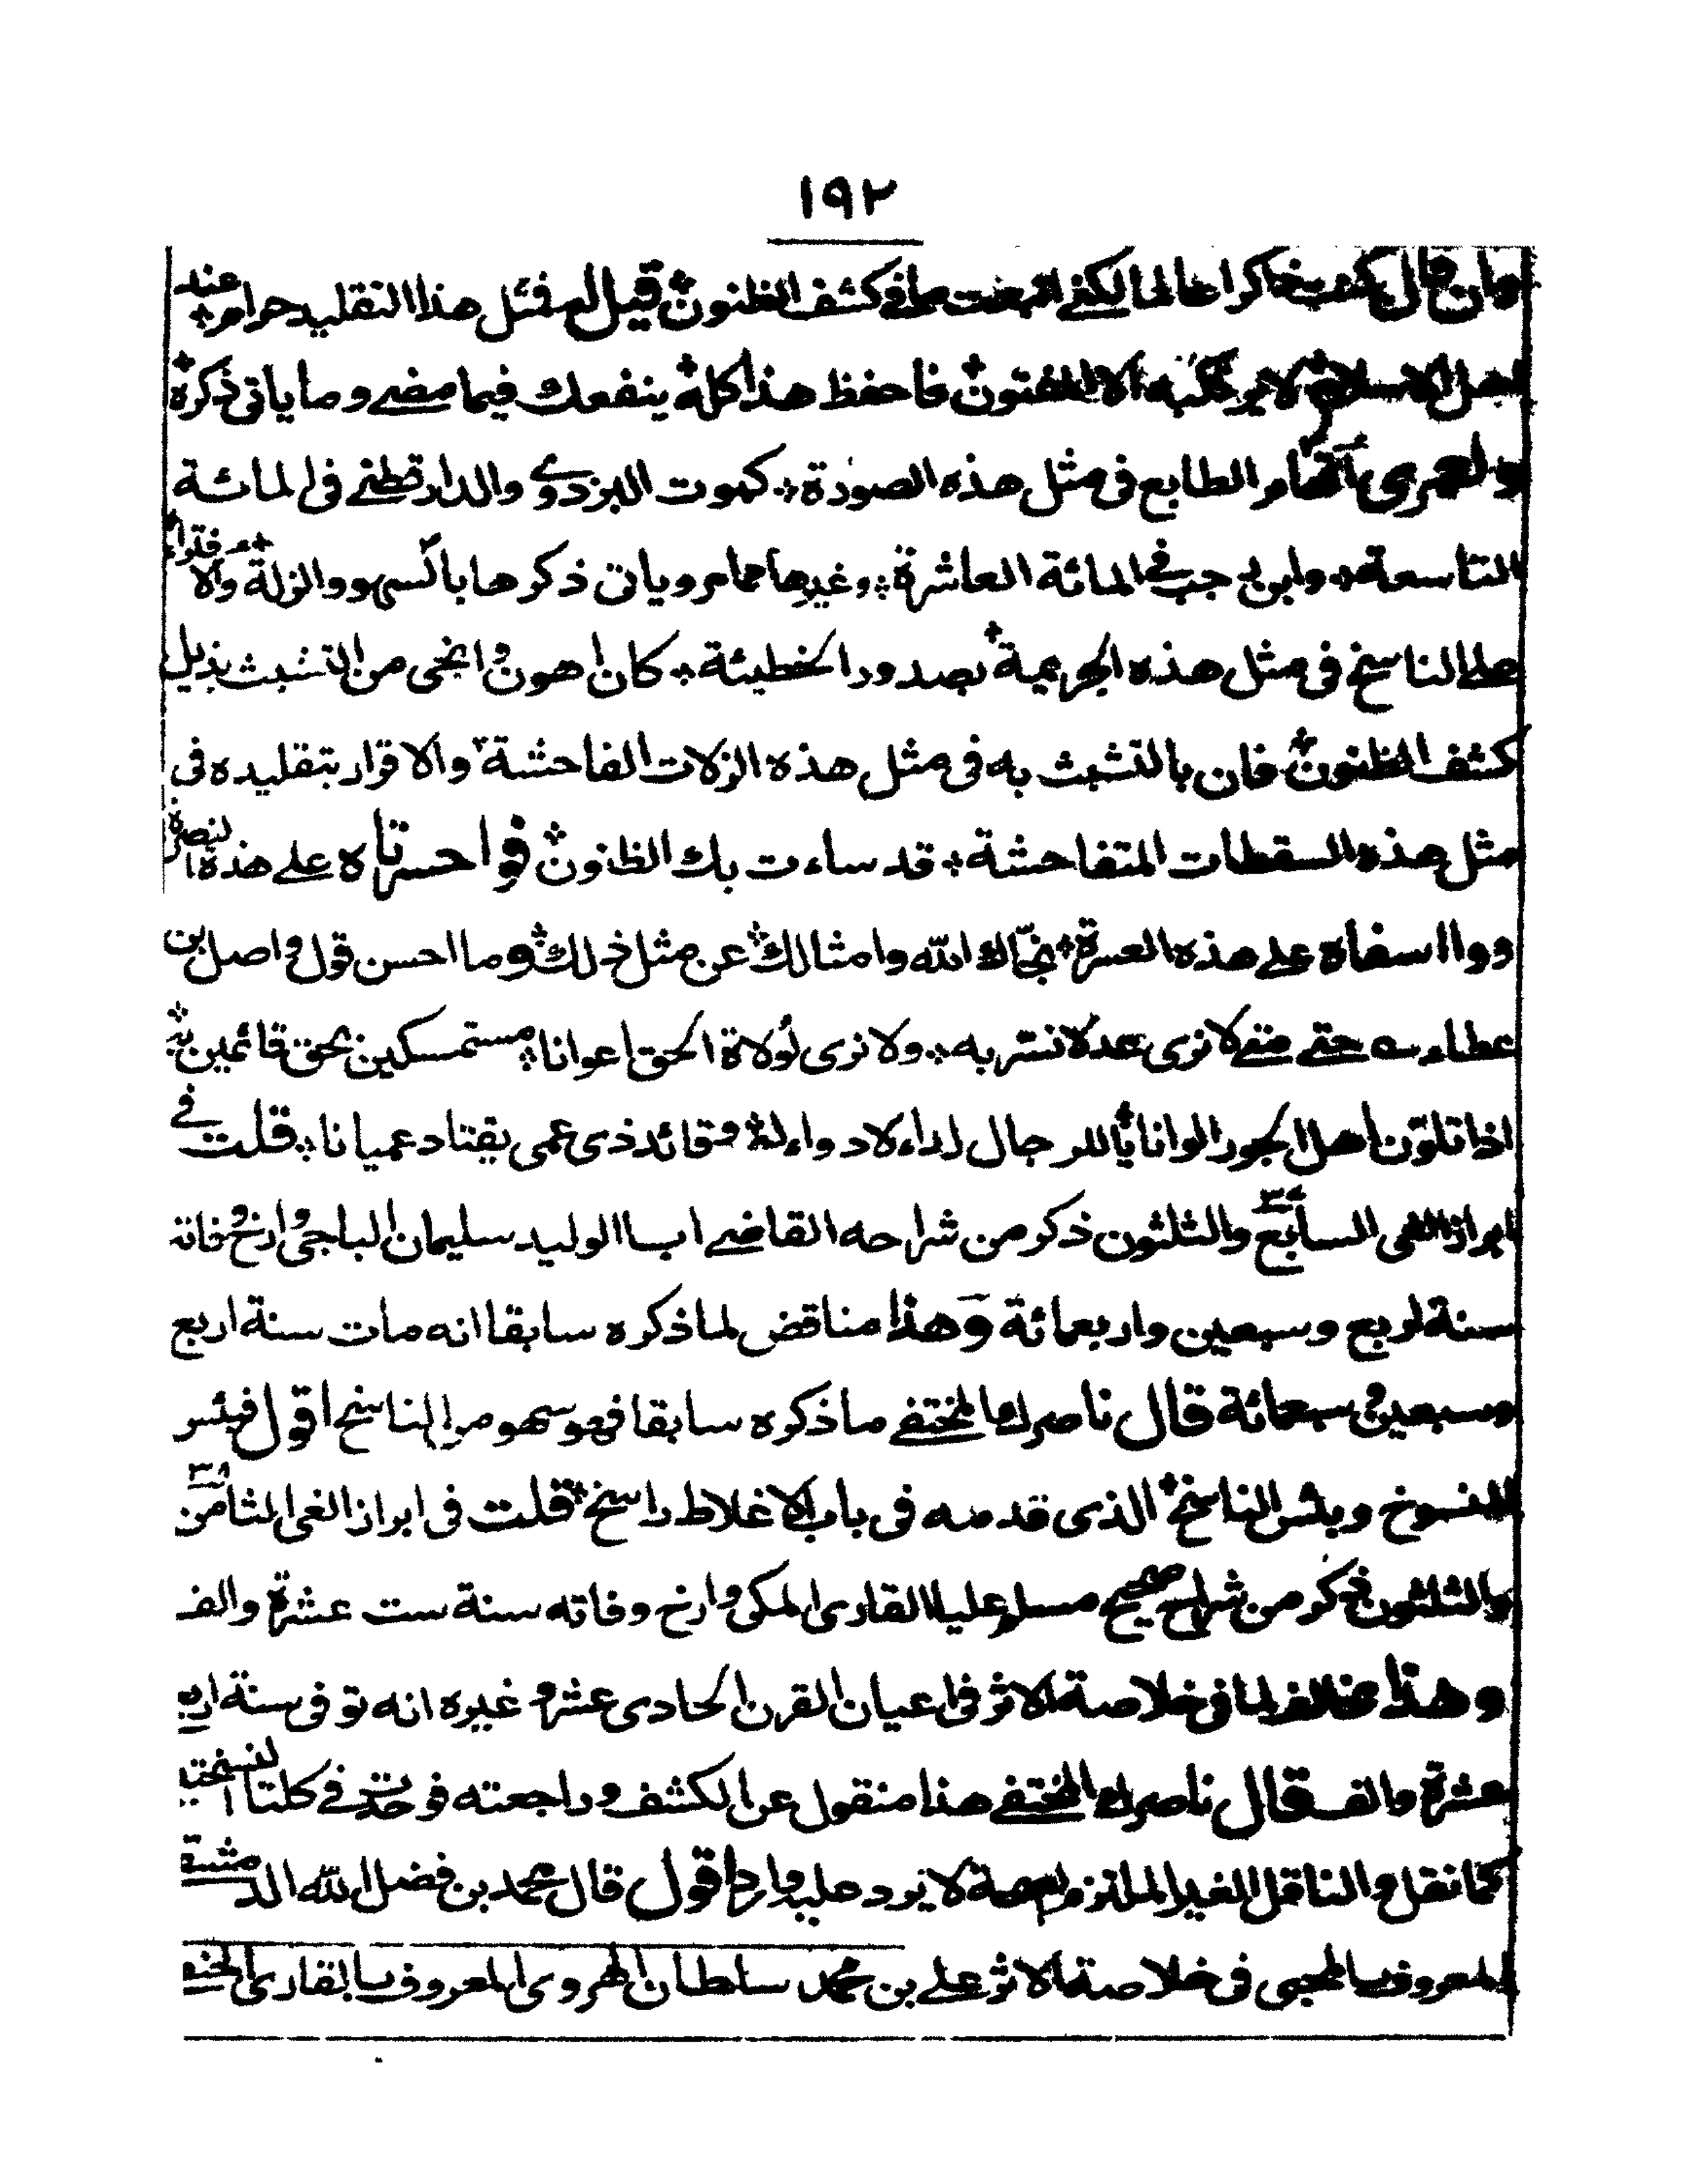 ١٩٢
كشف الظنون قيل له فمثل هذا التقليد حرام عند
اهل الاسلام لا يرتكبه الا المفتون فاحفظ هذا كله ينفعك فيما مضے وما ياتى ذكره
ولعمرى الطابع فى مثل هذه الصورة كموت البزدوى والدارقطنے فى المائة
التاسعة وابن رجب فے المائة العاشرة وغيرها مما مر وياتى ذكرها بالسهو والزلة والافتراء
على الناسخ فى مثل هذه الجريمة بصدور الخطيئة كان اهون وانجى من التشبث بذيل
كشف الظنون فان بالتشبث به فى مثل هذه الزلات الفاحشة والاقرار بتقليده فى
مثل هذه السقطات المتفاحشة قد ساءت بك الظنون فوا حسرتاه علے هذه النصرة
ووا اسفاه علے هذه العسرة نجاك الله وامثالك عن مثل ذلك وما احسن قول واصل بن
عطاء حتے متے لا نرى عدلا نسر به ولا نرى لولاة الحق اعوانا مستمسكين بحق قائمين به
اذا تلون اهل الجور الوانا يا للرجال لداء لا دواء له وقائد ذى عمى يقتاد عميانا قلت فے
ابراز الغى السابع والثلثون ذكر من شراحه القاضے ابا الوليد سليمان الباجى وارخ وفاته
سنة اربع وسبعين واربعمائة وهذا مناقض لما ذكره سابقا انه مات سنة اربع
وسبعين وسبعمائة قال ناصرك المختفے ما ذكره سابقا فهو سهو من الناسخ اقول فبئس
المنسوخ وبئس الناسخ الذى قدمه فى باب الاغلاط راسخ قلت فى ابراز الغى الثامن
والثلثون ذكر من شراح صحيح مسلم عليا القارى المكى وارخ وفاته سنة ست عشرة والف
وهذا مخالف لما فى خلاصة الاثر فى اعيان القرن الحادى عشر وغيره انه توفى سنة اربع
عشرة والف قال ناصرك المختفے هذا منقول عن الكشف وراجعته فوجدت فے كلتا النسختين
كما نقل والناقل الغير الملتزم لصحة لا يرد عليه وارد اقول قال محمد بن فضل الله الدمشقے
المعروف بالمحبى فى خلاصة الاثر علے بن محمد سلطان الهروى المعروف بالقارى الحنفے